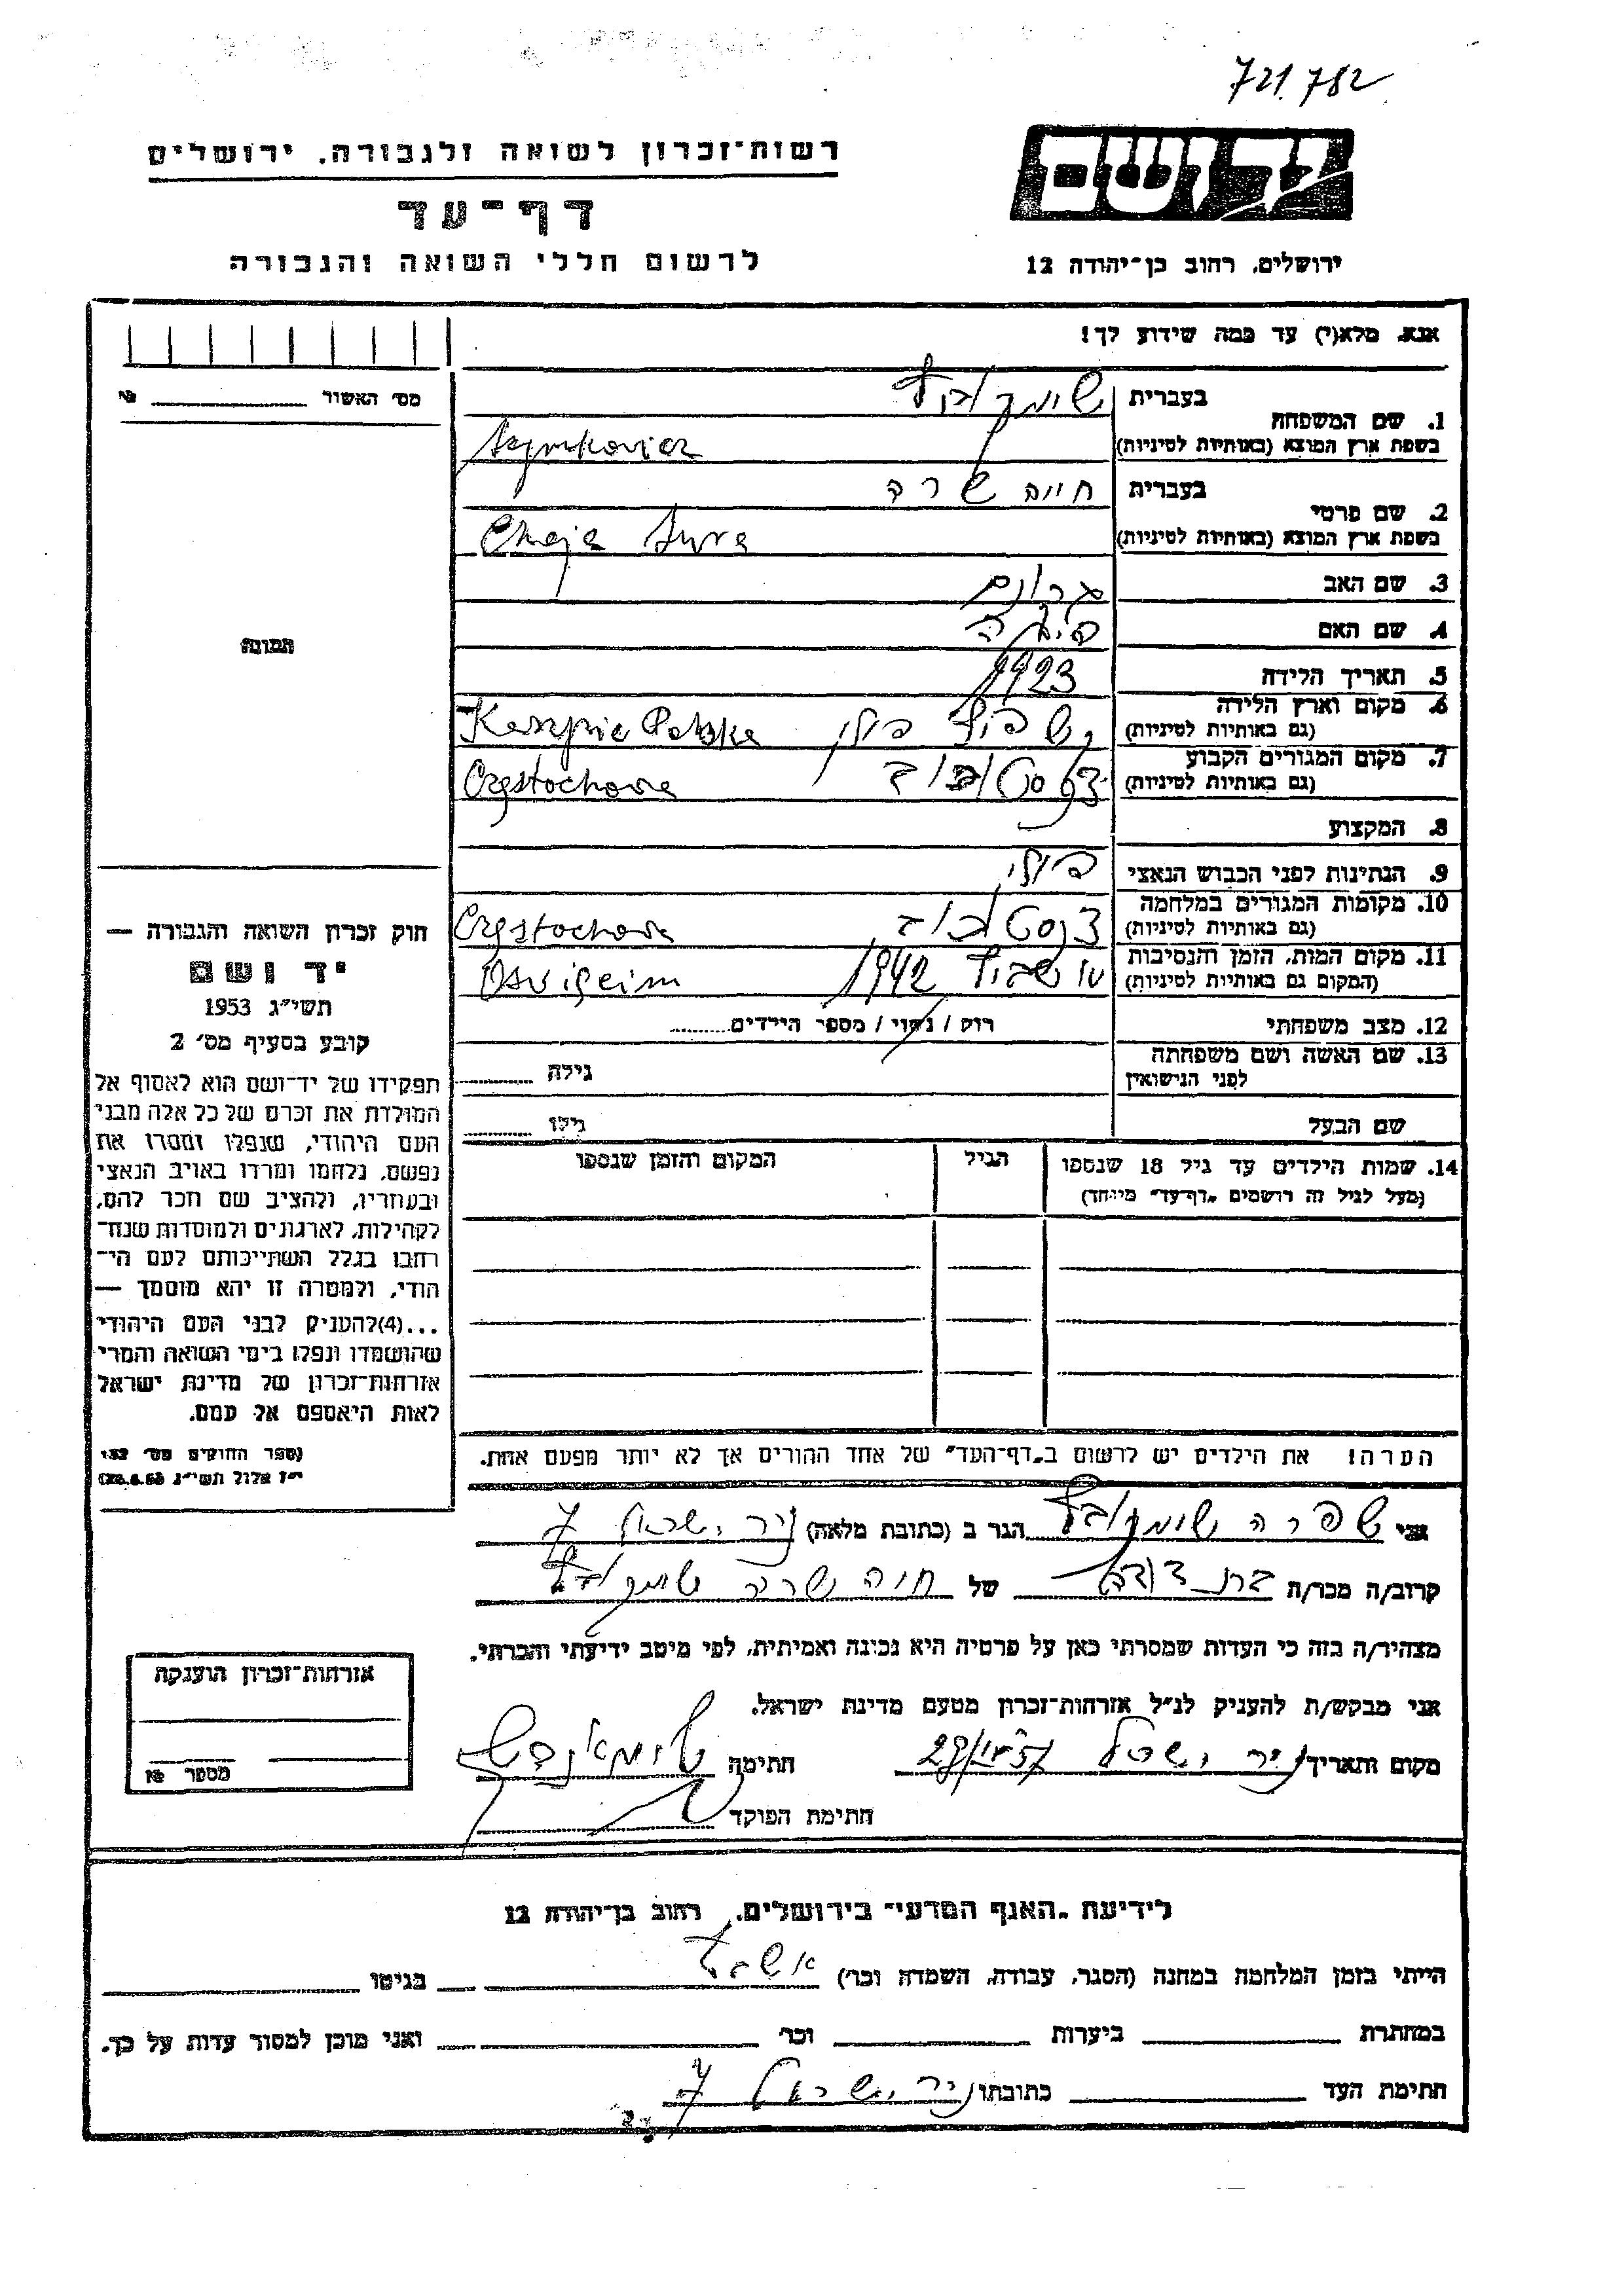 721.782
יד ושם
רשות-זכרון לשואה ולגבורה. ירושלים
דף-עד
לרשום חללי השואה והגבורה
ירושלים, רחוב בן-יהודה 12
אנא, מלא(י) עד כמה שידוע לך!
מס׳ האשור № 
1. שם המשפחה בעברית שימקוביץ
בשפת ארץ המוצא (באותיות לטיניות) Szymkovicz
2. שם פרטי בעברית חייה שרה
בשפת ארץ המוצא (באותיות לטיניות) Chaja Sura
3. שם האב
4. שם האם
5. תאריך הלידה 1923
6. מקום וארץ הלידה (גם באותיות לטיניות) פולין Polska
7. מקום המגורים הקבוע (גם באותיות לטיניות) Częstochowa
8. המקצוע
9. הנתינות לפני הכבוש הנאצי פולין
10. מקומות המגורים במלחמה (גם באותיות לטיניות) Częstochowa
11. מקום המות, הזמן והנסיבות (המקום גם באותיות לטיניות) 1942
12. מצב משפחתי רוק / נשוי / מספר הילדים
13. שם האשה ושם משפחתה לפני הנישואין גילה
שם הבעל גילו
14. שמות הילדים עד גיל 18 שנספו הגיל המקום והזמן שנספו
(מעל לגיל זה רושמים „דף-עד״ מיוחד)
הערה! את הילדים יש לרשום ב„דף-העד״ של אחד ההורים אך לא יותר מפעם אחת.
תמונה
חוק זכרון השואה והגבורה —
יד ושם
תשי״ג 1953
קובע בסעיף מס׳ 2
תפקידו של יד-ושם הוא לאסוף אל
המולדת את זכרם של כל אלה מבני
העם היהודי, שנפלו ומסרו את
נפשם, נלחמו ומרדו באויב הנאצי
ובעוזריו, ולהציב שם וזכר להם,
לקהילות, לארגונים ולמוסדות שנח־
רבו בגלל השתייכותם לעם הי־
הודי, ולמטרה זו יהא מוסמך —
...(4)להעניק לבני העם היהודי
שהושמדו ונפלו בימי השואה והמרי
אזרחות-זכרון של מדינת ישראל
לאות היאספם אל עמם.
(ספר החוקים מס׳ 132
י״ז אלול תשי״ג 28.8.53)
אני שפרה שימקוביץ הגר ב (כתובת מלאה) ניר ישראל 7
קרוב/ה מכר/ה בת דודה של חיה שרה שימקוביץ
מצהיר/ה בזה כי העדות שמסרתי כאן על פרטיה היא נכונה ואמיתית, לפי מיטב ידיעתי והכרתי.
אני מבקש/ת להעניק לנ״ל אזרחות-זכרון מטעם מדינת ישראל.
מקום ותאריך ניר ישראל חתימה
חתימת הפוקד
אזרחות-זכרון הוענקה
מספר №
לידיעת „האגף המדעי״ בירושלים, רחוב בן-יהודה 12
הייתי בזמן המלחמה במחנה (הסגר, עבודה, השמדה וכו׳) בגיטו
במחתרת ביערות וכו׳ ואני מוכן למסור עדות על כך.
חתימת העד כתובתו ניר ישראל 7